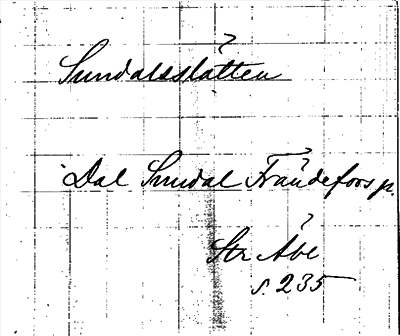 Sundalsslätten
Dal Sundal Frändefors p.
Str Åbe
s. 235